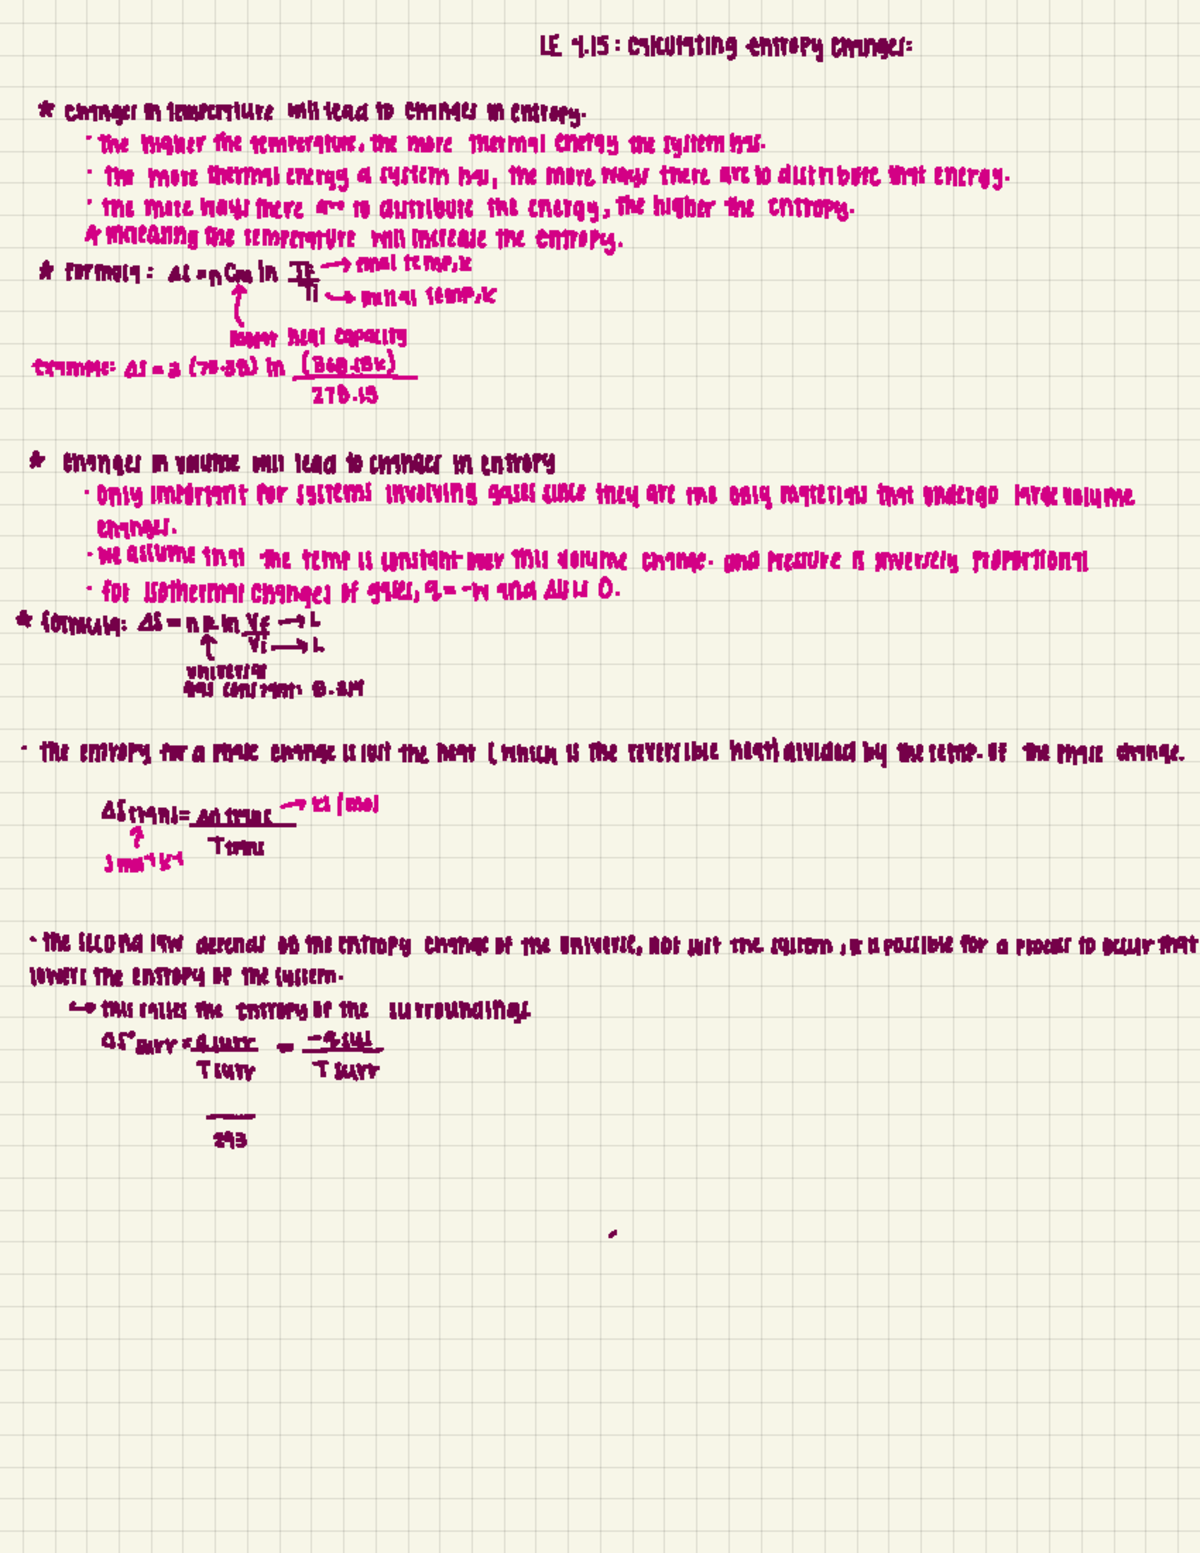 LE 4.15: calculating entropy changes:
* changes in temperature will lead to changes in entropy.
· the higher the temperature, the more thermal energy the system has.
· the more thermal energy a system has, the more ways there are to distribute that energy.
· the more ways there are to distribute the energy, the higher the entropy.
the temperature will increase the entropy.
* formula: ΔS = n Cm ln Tf → final temp, K
Ti → initial temp, K
molar heat capacity
example: ΔS = 3 (75.38) ln (368.15K)
278.15
* changes in volume will lead to changes in entropy
· only important for systems involving gases since they are the only materials that undergo large volume
changes.
· we assume that the temp is constant over this volume change. and pressure is inversely proportional
· for isothermal changes of gases, q = -w and ΔU is 0.
* formula: ΔS = n R ln Vf → L
Vi → L
universal
gas constant: 8.314
· the entropy for a phase change is just the heat (which is the reversible heat) divided by the temp. of the phase change.
ΔStrans = ΔHtrans → kJ/mol
Ttrans
J mol⁻¹ K⁻¹
· the second law depends on the entropy change of the universe, not just the system, it is possible for a process to occur that
lowers the entropy of the system.
↪ this raises the entropy of the surroundings
ΔS°surr = qsurr = -qsys
Tsurr Tsurr
293